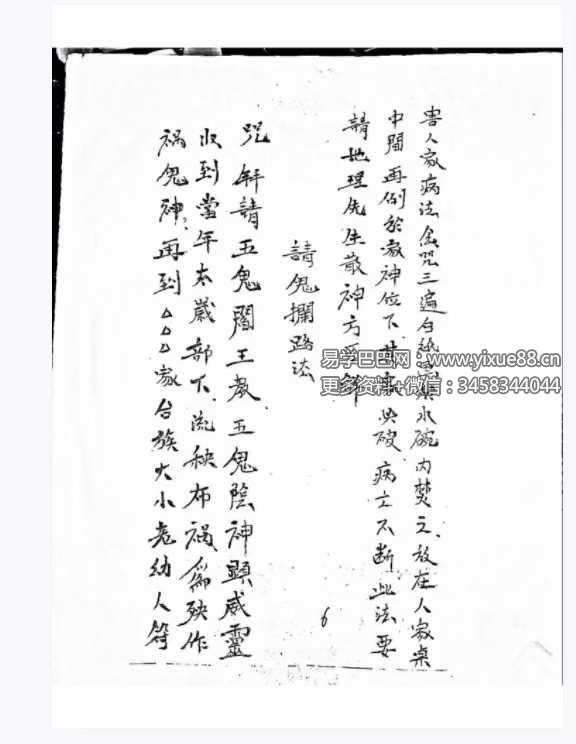 害人家病法念咒三遍白紙水碗內焚之放在人家桌
中間再倒於家神位下其家必破病亡不斷此法要
請地理先生散神方可
請鬼攔路法
咒 請五鬼閻王教五鬼陰神顯威靈
收到當年太歲部下流秧布禍為殃作
禍鬼神再到△△△家合族大小老幼人等
6
易学巴巴网：www.yixue88.cn
更多资料+微信：3458344044